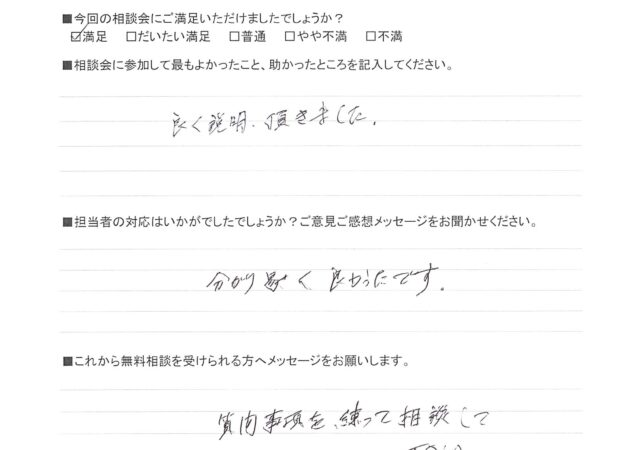 ■今回の相談会にご満足いただけましたでしょうか？
☑満足 □だいたい満足 □普通 □やや不満 □不満
■相談会に参加して最もよかったこと、助かったところを記入してください。
良く説明、頂きました。
■担当者の対応はいかがでしたでしょうか？ご意見ご感想メッセージをお聞かせください。
分かり易く良かったです。
■これから無料相談を受けられる方へメッセージをお願いします。
質問事項を、練って相談して